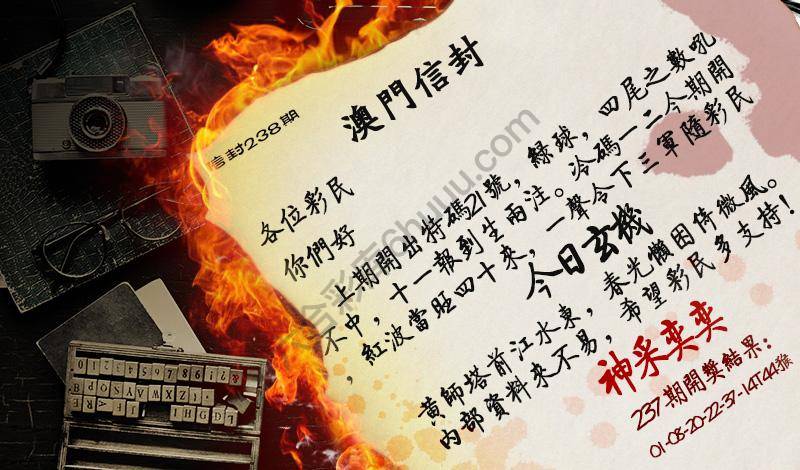 澳門信封
信封238期
各位彩民
你們好
上期開出特碼21號，綠球，四尾之數吼
不中，十一報到生兩注。冷碼一二今期開
，紅波當旺四十來，一聲令下三軍隨彩民
今日玄機
黃師塔前江水東，春光懶困倚微風。
內部資料來不易，希望彩民多支持！
神采奕奕
237期開獎結果：
01-08-20-22-37-14T44猴